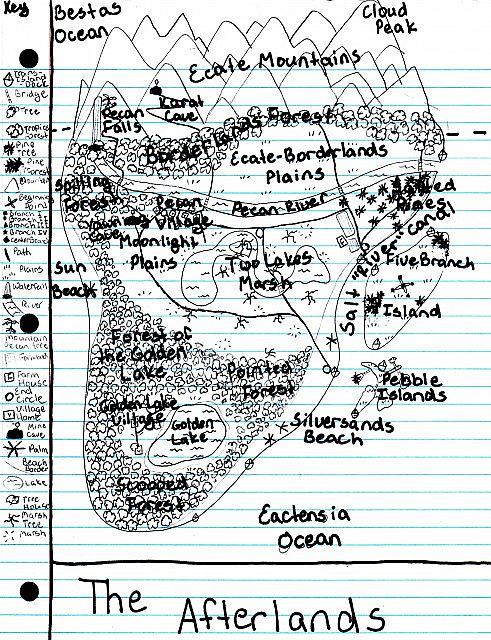 Key
Bestas
Ocean
Cloud
Peak
Ecate Mountains
Karat
Cave
Pecan
Falls
Borderlands Forest
Ecate-Borderlands
Plains
Forest
Pecan River
Pecan
Village
Pines
Moonlight
Plains
Two Lakes
Marsh
Salt River Canal
Five Branch
Island
Sun
Beach
Forest of
the Golden
Lake
Pointed
Forest
Pebble
Islands
Golden Lake
Village
Golden
Lake
Silversands
Beach
Scooped
Forest
Eactensia
Ocean
The
Afterlands
Dock
Bridge
Tree
Tropic
Forest
Pine
Tree
Pine
Forest
Mountain
Beginning
Point
Branch II
Branch III
Branch IV
Path
Plains
Waterfall
River
Mountain
Pecan Tree
Farmland
Farm
House
End
Circle
Village
Home
Mine
Cave
Palm
Beach
Border
Lake
Tree
House
Marsh
Tree
Marsh